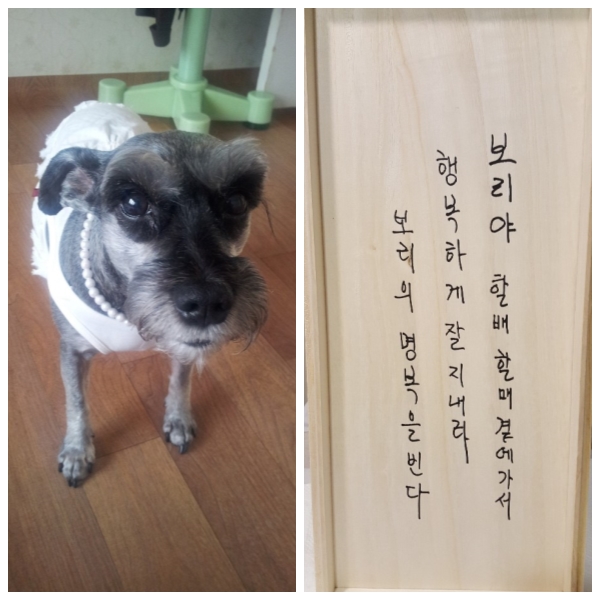 보리야 할배 할매 곁에가서
행복하게 잘 지내라
보리의 명복을 빈다